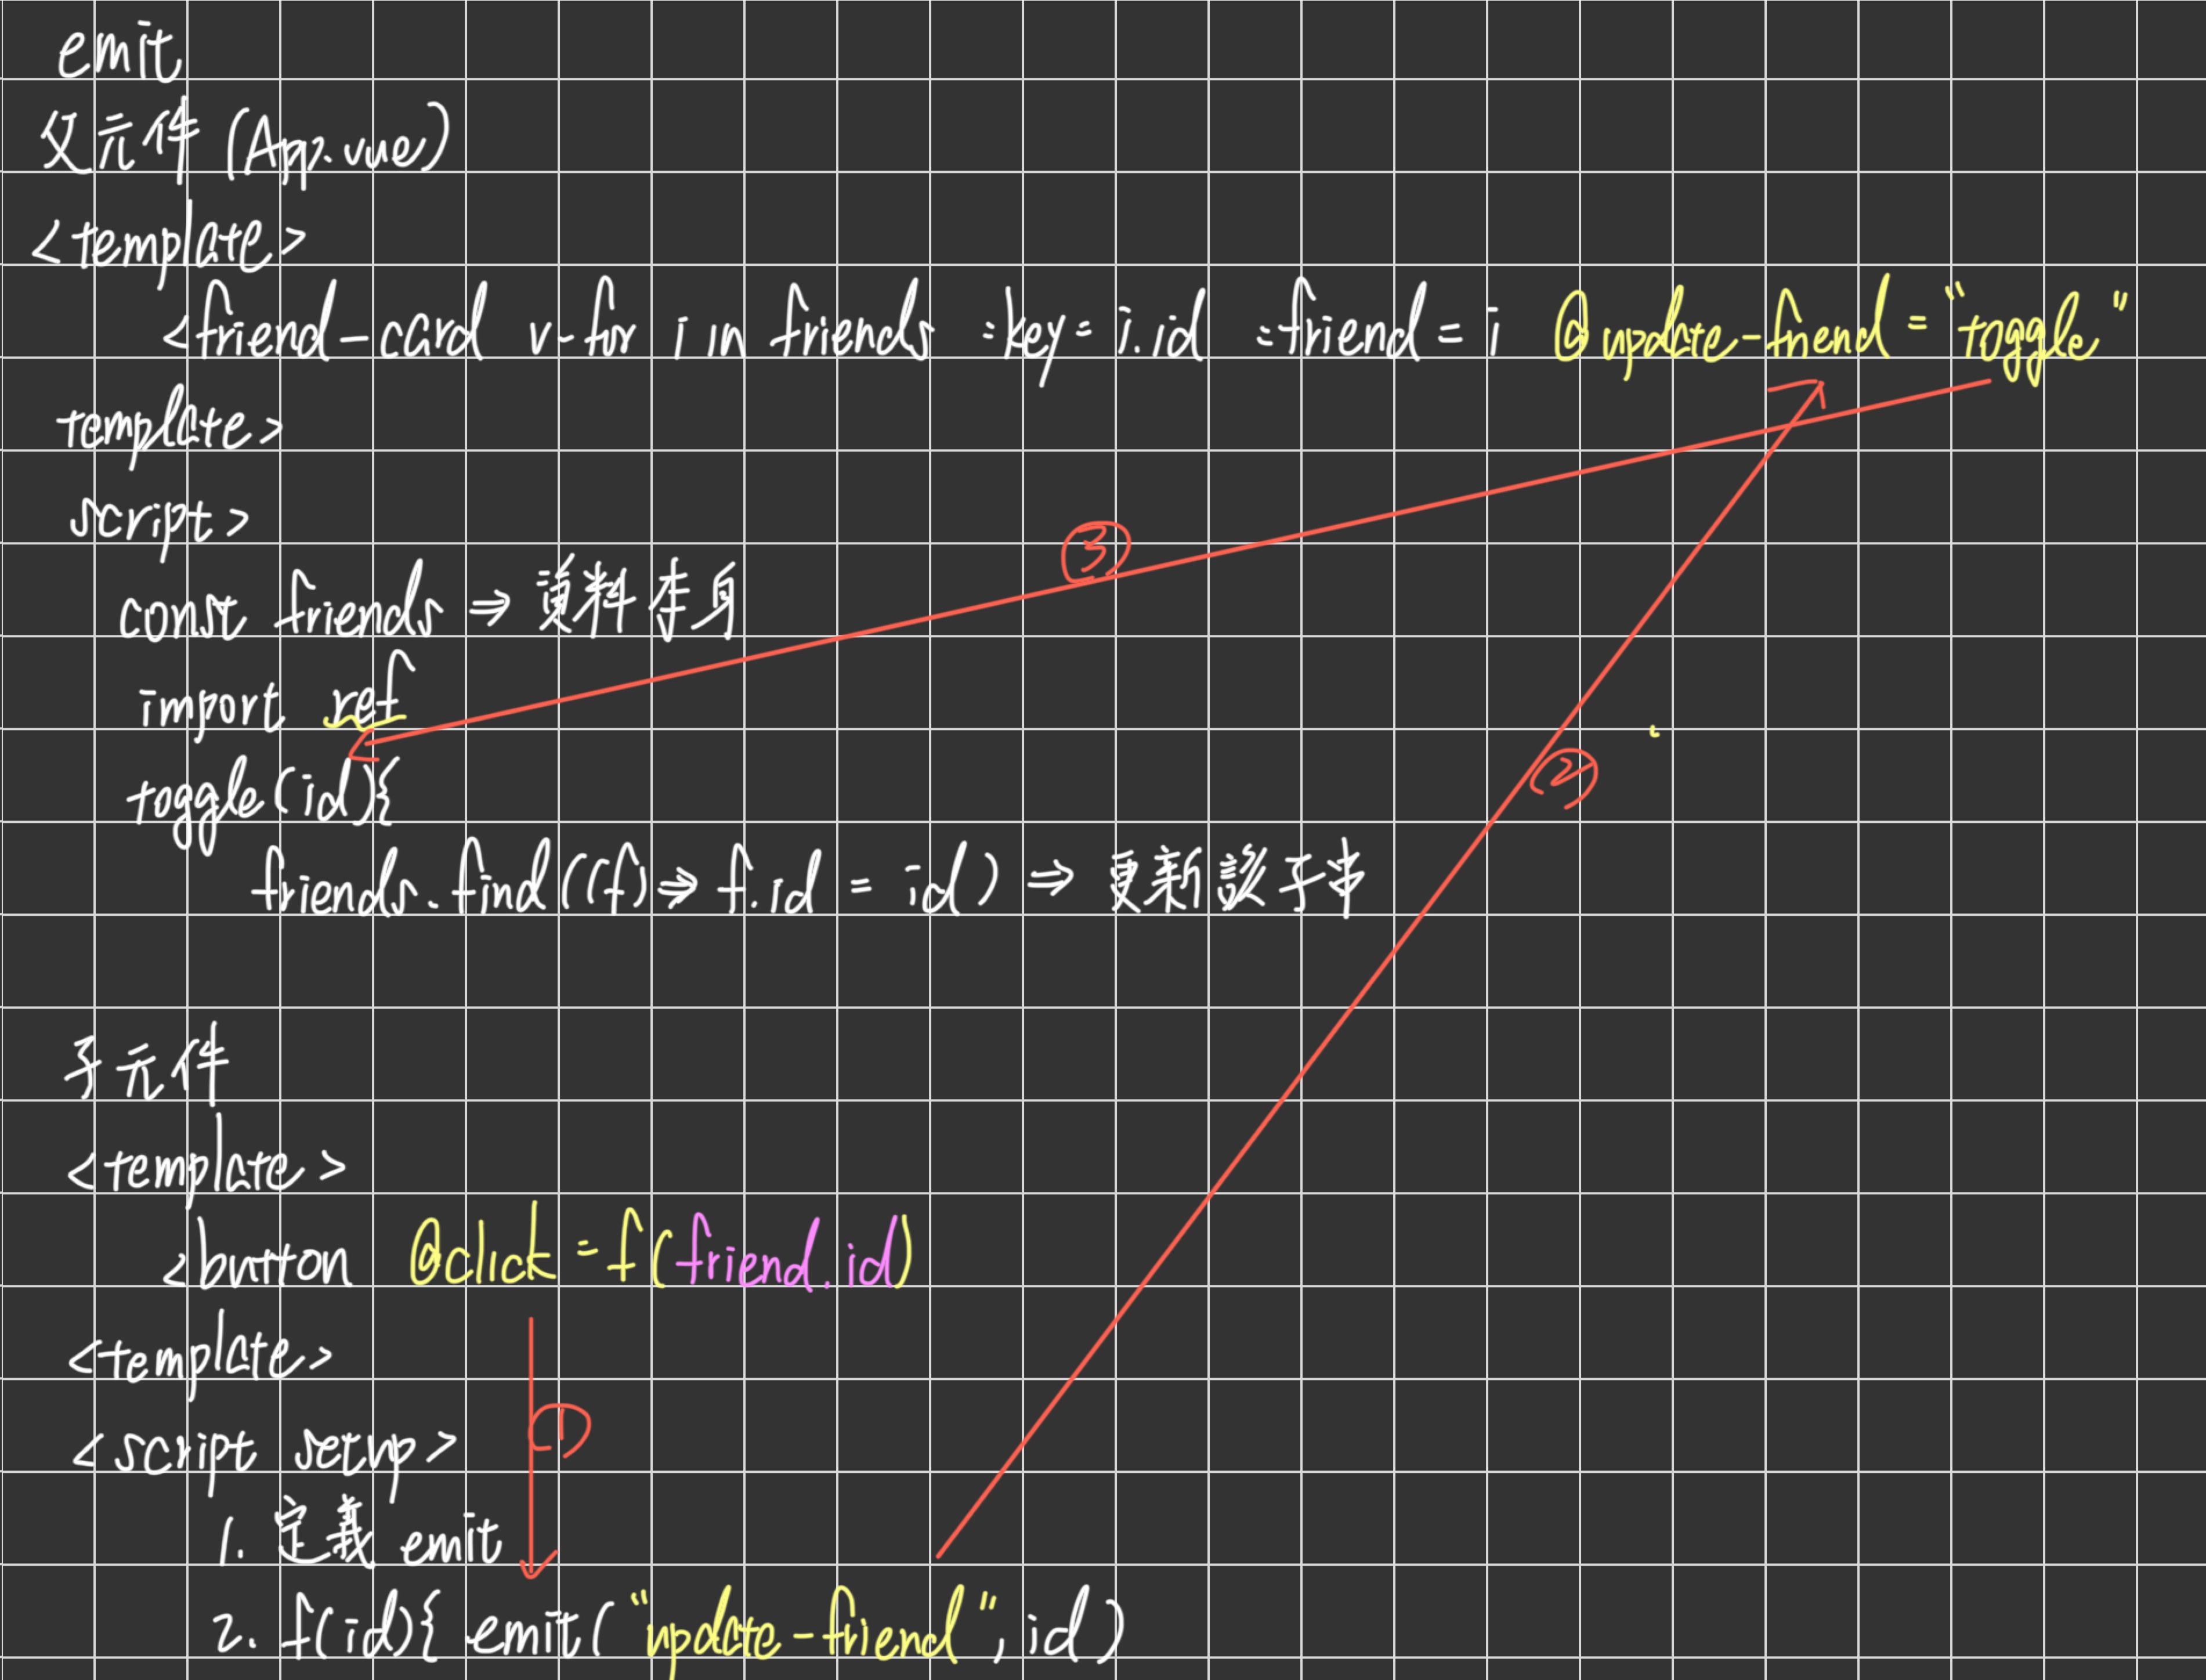 emit
父元件 (App.vue)
<template>
<friend-card v-for i in friends :key=i.id :friend=i @update-friend="toggle"
template>
script>
const friends ⇒ 資料本身
import ref
toggle(id){
friends.find((f)⇒ f.id = id) ⇒ 更新該字串
子元件
<template>
<button @click=f(friend.id)
<template>
<script setup>
1. 定義 emit
2. f(id){ emit("update-friend", id)
①
②
③